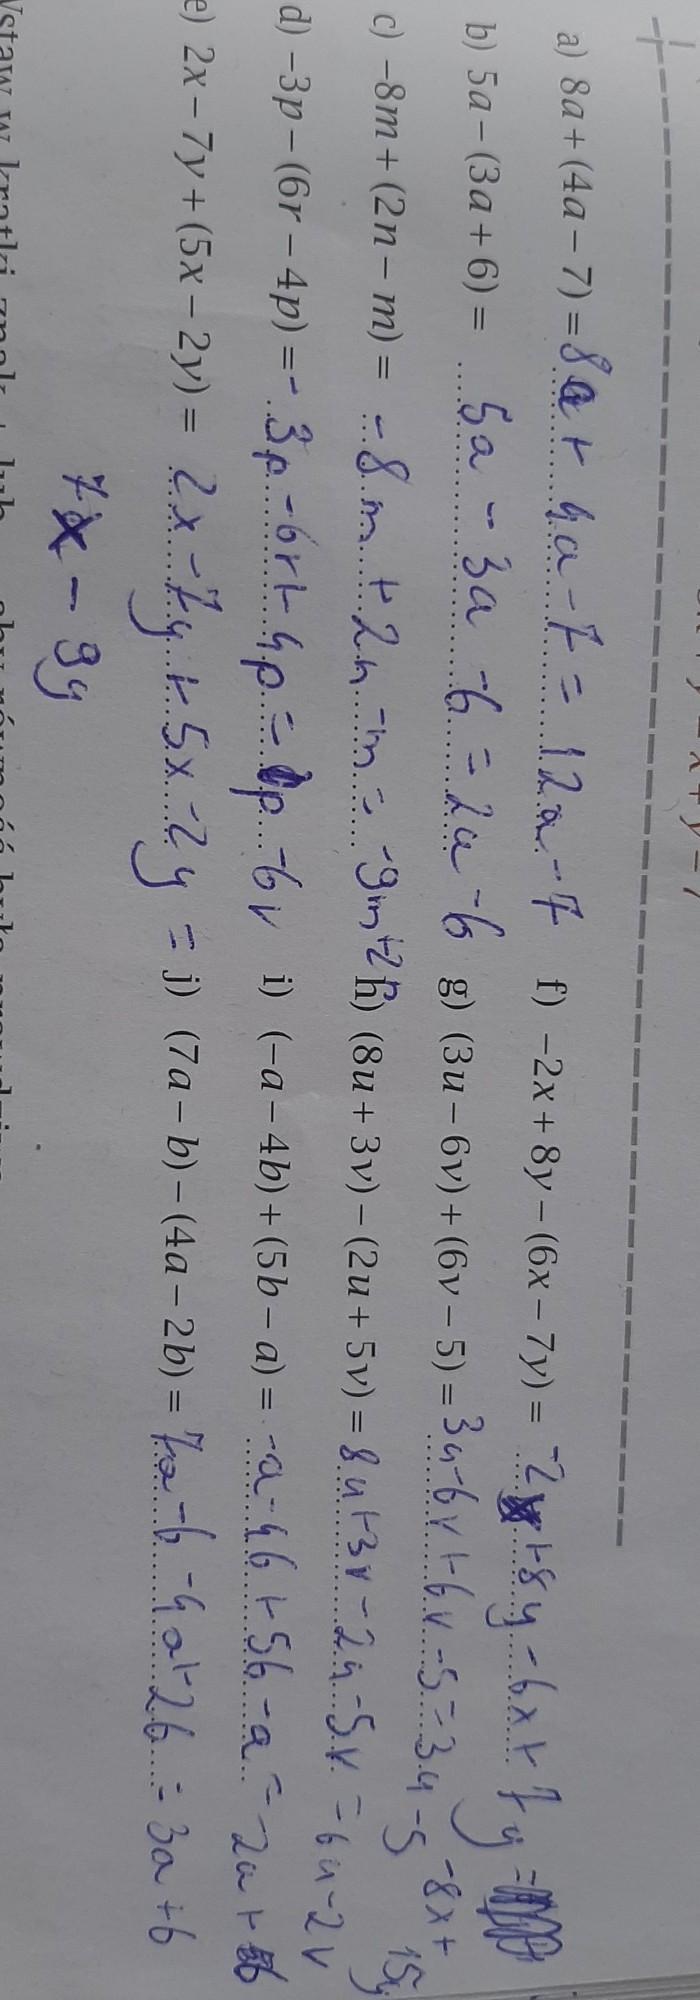 a) 8a + (4a − 7) = 8a + 4a − 7 = 12a − 7
b) 5a − (3a + 6) = 5a − 3a − 6 = 2a − 6
c) −8m + (2n − m) = −8m + 2n − m = −9m + 2n
d) −3p − (6r − 4p) = −3p − 6r + 4p = p − 6r
e) 2x − 7y + (5x − 2y) = 2x − 7y + 5x − 2y =
7x − 9y
f) −2x + 8y − (6x − 7y) = −2x + 8y − 6x + 7y =
−8x + 15y
g) (3u − 6v) + (6v − 5) = 3u − 6v + 6v − 5 = 3u − 5
h) (8u + 3v) − (2u + 5v) = 8u + 3v − 2u − 5v = 6u − 2v
i) (−a − 4b) + (5b − a) = −a − 4b + 5b − a = −2a + b
j) (7a − b) − (4a − 2b) = 7a − b − 4a + 2b = 3a + b